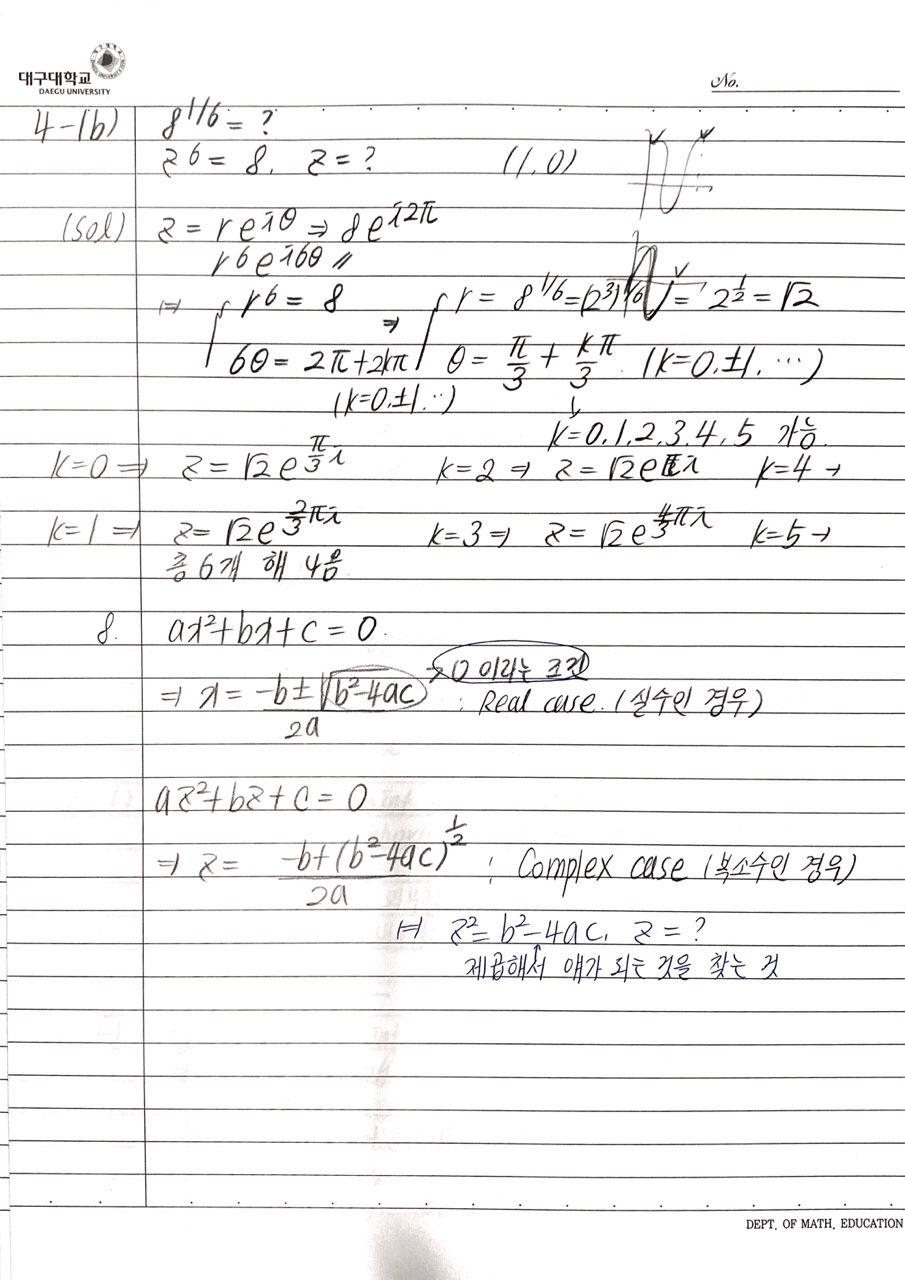 대구대학교
DAEGU UNIVERSITY
No.
4-(b) 8^{1/6} = ?
z^6 = 8, z = ? (1, 0)
(sol) z = re^{iθ} ⇒ 8e^{i2π}
r^6 e^{i6θ} 〃
⇒ r^6 = 8 ⇒ r = 8^{1/6} = (2^3)^{1/6} = 2^{1/2} = √2
6θ = 2π+2kπ θ = π/3 + kπ/3 (k=0, ±1, ⋯)
(k=0, ±1, ⋯)
↓
k=0, 1, 2, 3, 4, 5 가능.
k=0 ⇒ z = √2e^{π/3 i} k=2 ⇒ z = √2e^{πi} k=4 →
k=1 ⇒ z = √2e^{2/3 πi} k=3 ⇒ z = √2e^{4/3 πi} k=5 →
총 6개 해 나옴
8. ax²+bx+c = 0.
→ 0 이라는 조건
⇒ x = (-b±√(b²-4ac))/2a : Real case. (실수인 경우)
az²+bz+c = 0
⇒ z = (-b+(b²-4ac)^{1/2})/2a : Complex case (복소수인 경우)
⇒ z² = b²-4ac, z = ?
제곱해서 얘가 되는 것을 찾는 것
DEPT. OF MATH. EDUCATION